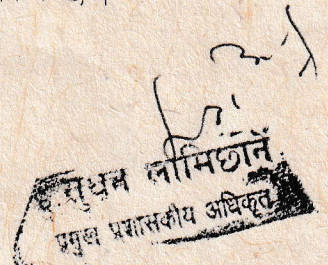 सुधन लामिछाने
प्रमुख प्रशासकीय अधिकृत